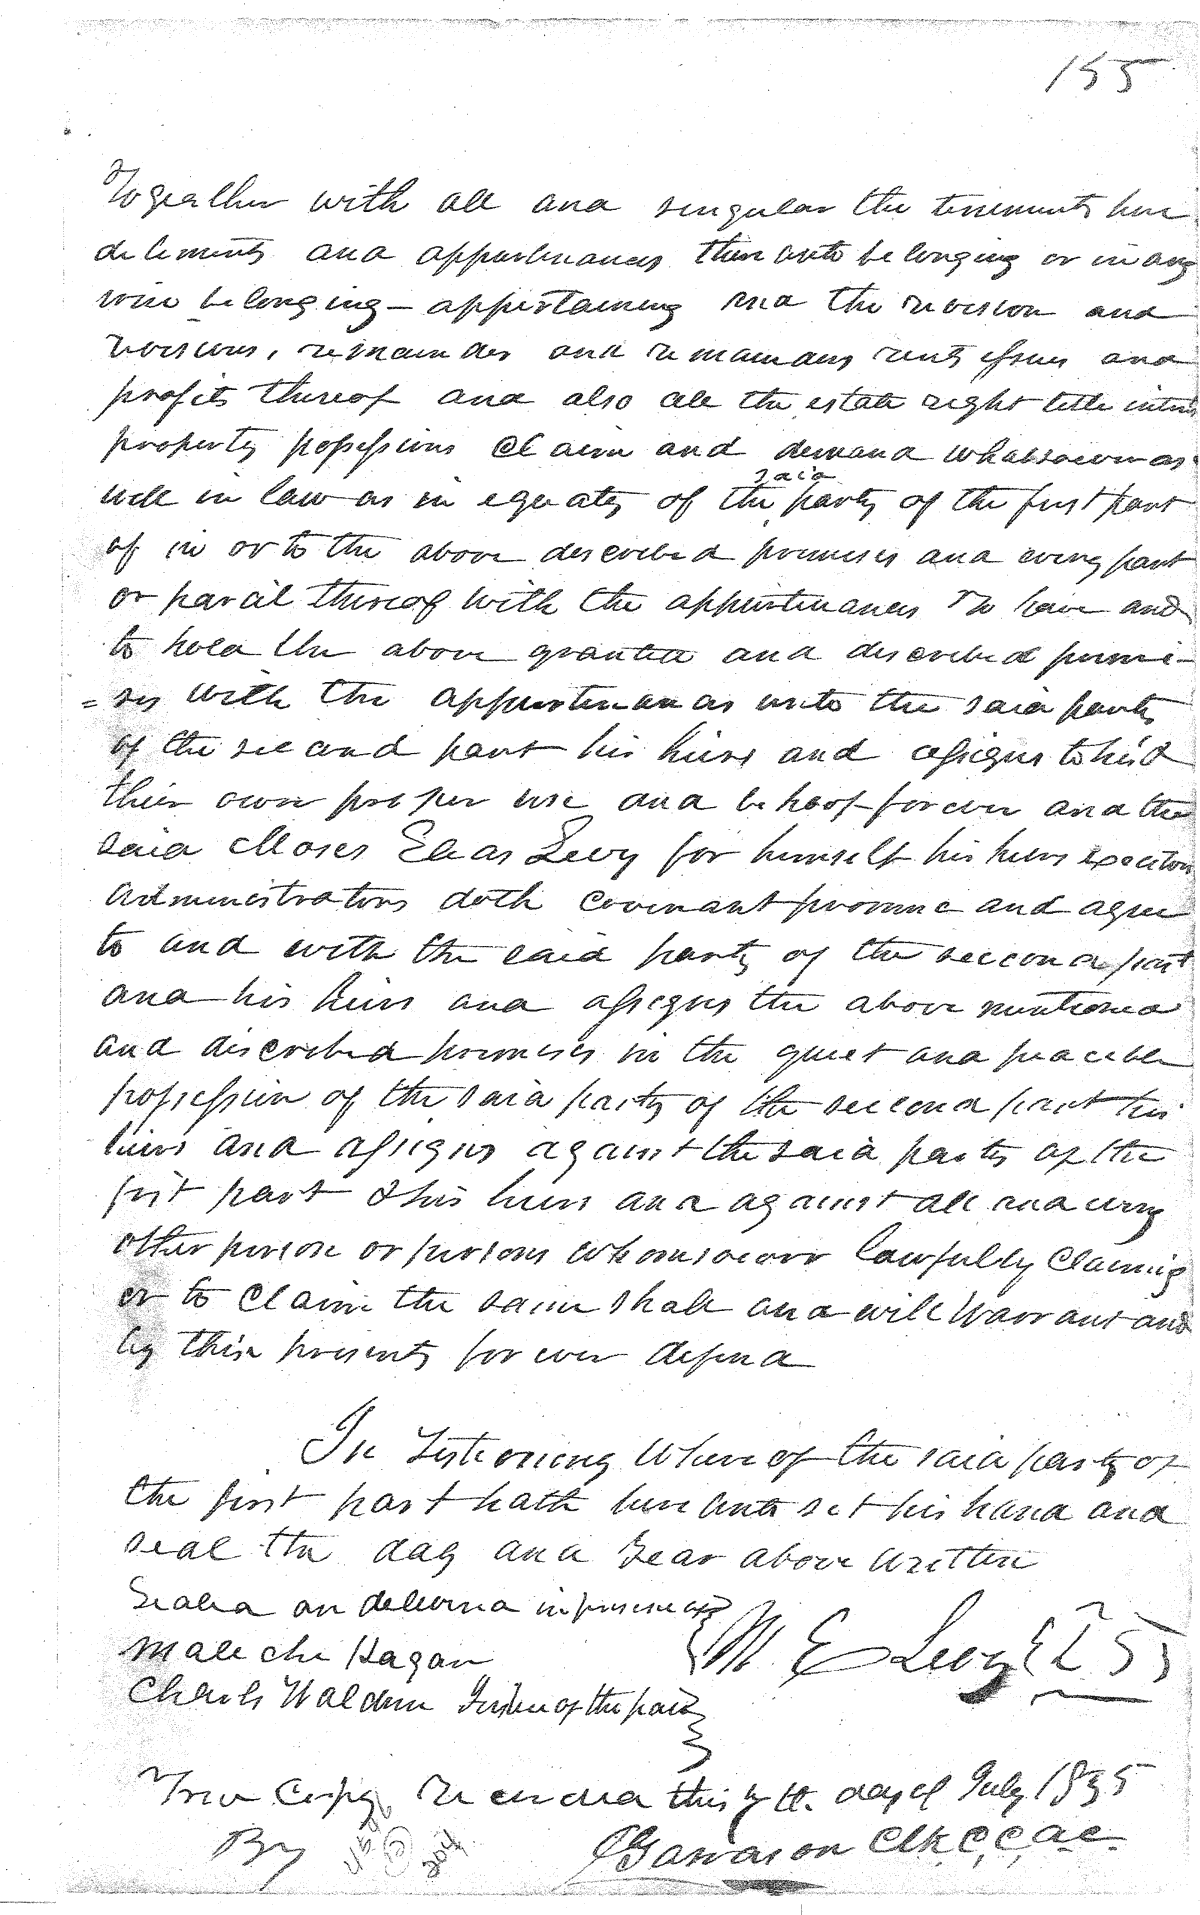 155
Together with all and singular the tenements here
deliments and appurtenances thereunto belonging or in any
wise belonging - appertaining and the revision and
revisions, remainder and remainders rents issues and
profits thereof and also all the estate right title interes
property possessions Claim and demand whatsoever as
well in law as in equaty of the said party of the first part
of in or to the above described premises and every part
or parcil thereof with the appurtenances To have and
to hold the above granted and described premi-
=ses with the appurtenances unto the said party
of the second part his heirs and assigns to his &
their own proper use and behoof forever and the
said Moses Elias Levy for himself his heirs Executors
Administrators doth covenant promise and agree
to and with the said party of the second part
and his heirs and assigns the above mentioned
and described premises in the quiet and peaceble
possession of the said party of the second part his
heirs and assigns against the said party of the
first part & his heirs and against all and every
other person or persons whomsoever lawfully Claiming
or to Claim the same shall and will Warrant and
by these presents forever defend
In Testimony Whereof the said party of
the first part hath hereunto set his hand and
seal the day and year above written
Sealed and delivered in presence of
M. E. Levy {LS}
Malechi Hagan
Charls Waldron Justice of the peace
True Copy Recorded this 7th. day of July 1835
By
Clk, C, C, A C